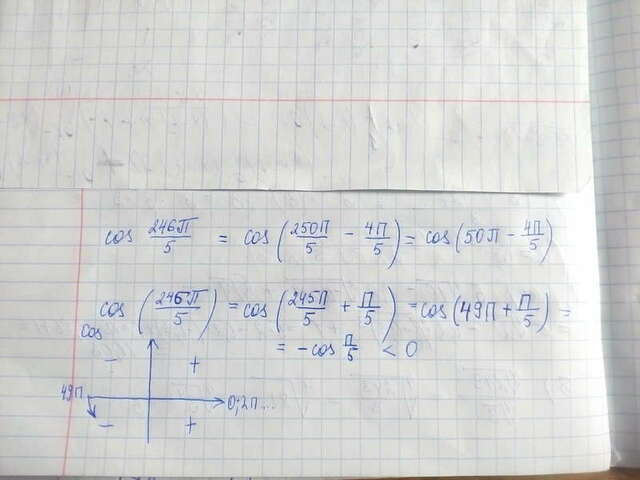 cos 246π/5 = cos(250π/5 − 4π/5) = cos(50π − 4π/5)
cos (246π/5) = cos(245π/5 + π/5) = cos(49π + π/5) =
= −cos π/5 < 0
cos
− +
49π 0;2π...
− +